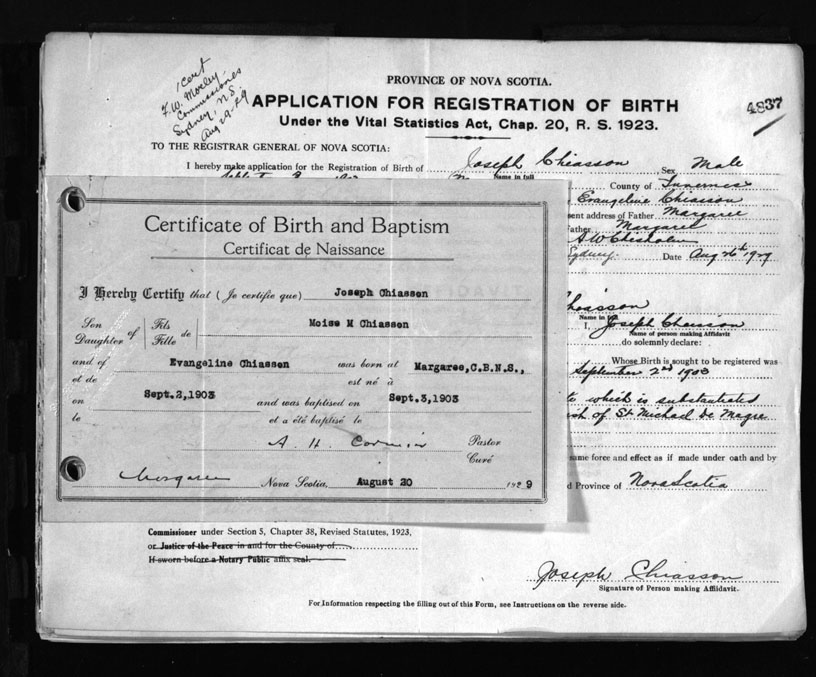 1 cert
F.W. Morley
Commissioner
Sydney, N.S.
Aug 29-29
PROVINCE OF NOVA SCOTIA.
4837
APPLICATION FOR REGISTRATION OF BIRTH
Under the Vital Statistics Act, Chap. 20, R. S. 1923.
TO THE REGISTRAR GENERAL OF NOVA SCOTIA:
I hereby make application for the Registration of Birth of Joseph Chiasson Sex Male
Name in full
County of Inverness
Evangeline Chiasson
sent address of Father Margaree
Father Margaree
A W Chisholm
Sydney Date Aug 26th 1929
Chiasson
Name in full
I, Joseph Chiasson
Name of person making Affidavit
do solemnly declare:
Whose Birth is sought to be registered was
September 2nd 1903
which is substantiated
of St Michael de Magre
same force and effect as if made under oath and by
Province of Nova Scotia
Certificate of Birth and Baptism
Certificat de Naissance
I Hereby Certify that (Je certifie que) Joseph Chiasson
Son Daughter of Fils Fille de Moise M Chiasson
and of Evangeline Chiasson was born at Margaree,C.B.N.S.,
et de est né à
on Sept.2,1903 and was baptised on Sept.3,1903
le et a été baptisé le
A. H. Cormier Pastor
Curé
Margaree Nova Scotia, August 20 192 9
Commissioner under Section 5, Chapter 38, Revised Statutes, 1923,
or Justice of the Peace in and for the County of
If sworn before a Notary Public affix seal.
Joseph Chiasson
Signature of Person making Affidavit.
For Information respecting the filling out of this Form, see Instructions on the reverse side.